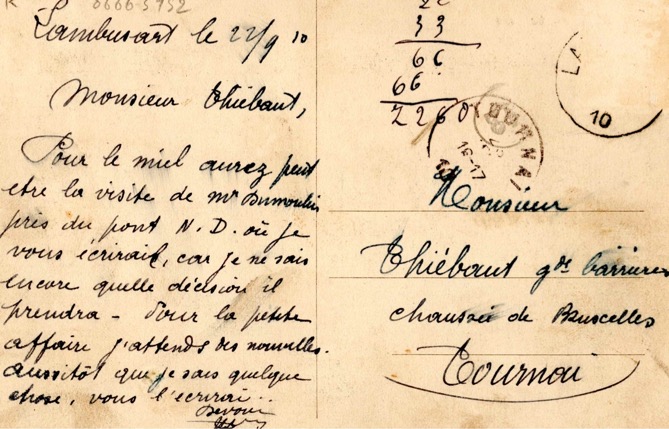 0666-5752
Lambusart le 22/9 10
Monsieur Thiébaut,
Pour le miel aurez peut
etre la visite de mr Dumoulin
près du pont N. D. où je
vous écrirait, car je ne sais
encore quelle décision il
prendra - Pour la petite
affaire j'attends des nouvelles.
aussitôt que je sais quelque
chose, vous l'écrirai..
22
33
66
66
2260
TOURNAI
16-17
LA
10
Monsieur
Thiébaut gde barrières
chaussée de Bruxelles
Tournai